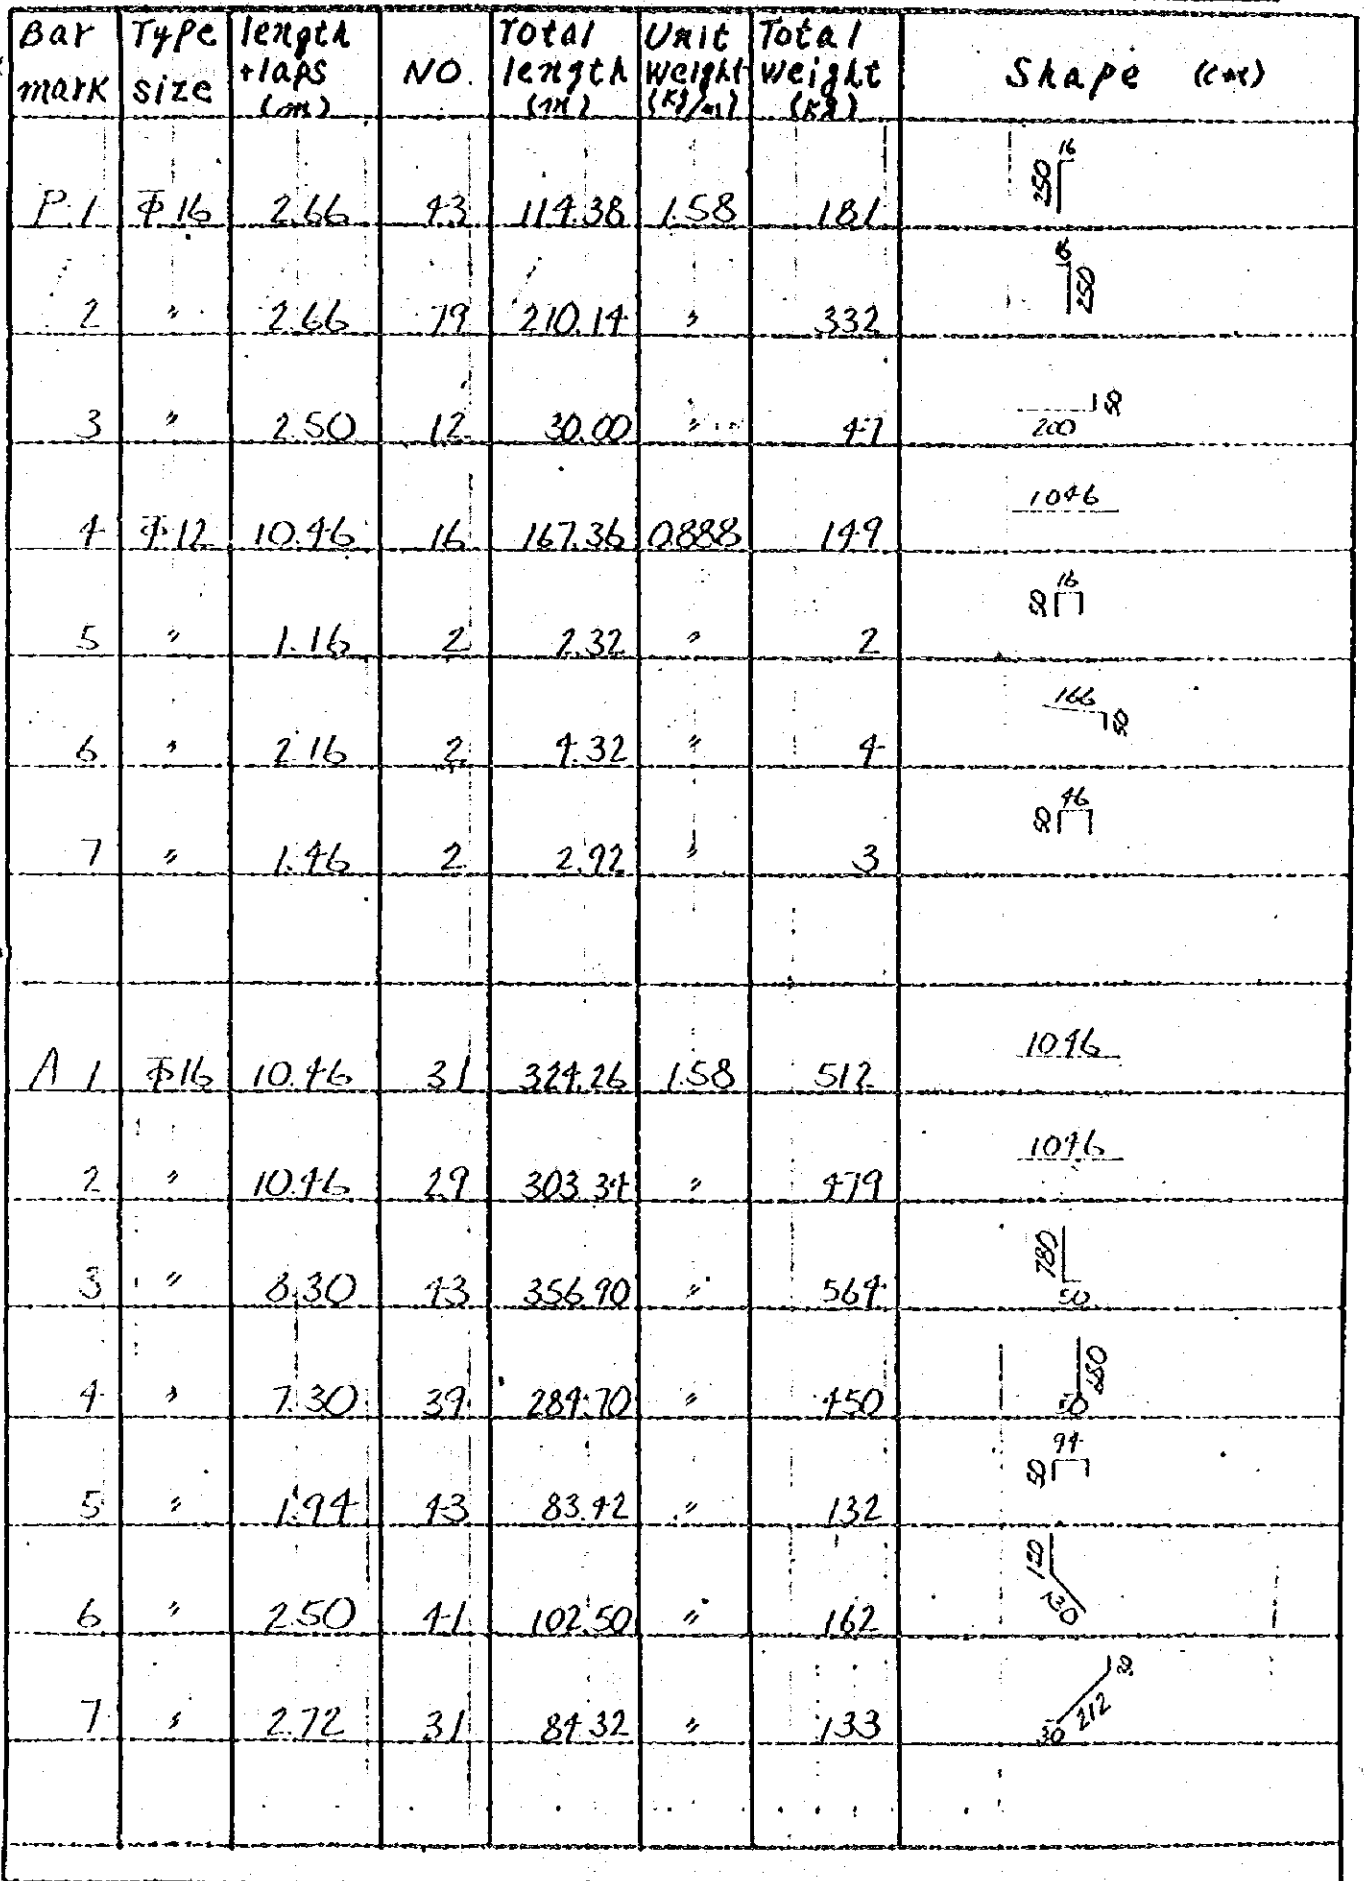 Bar mark Type size length +laps (m) NO. Total length (m) Unit weight (Kg/m) Total weight (Kg) Shape (cm)
P 1 Φ16 2.66 43 114.38 1.58 181 250 16
2 〃 2.66 79 210.14 〃 332 16 250
3 〃 2.50 12 30.00 〃 47 200 50
4 Φ12 10.46 16 167.36 0.888 149 1046
5 〃 1.16 2 2.32 〃 2 50 16
6 〃 2.16 2 4.32 〃 4 166 50
7 〃 1.46 2 2.92 〃 3 50 46
A 1 Φ16 10.46 31 324.26 1.58 512 1046
2 〃 10.46 29 303.34 〃 479 1046
3 〃 8.30 43 356.90 〃 564 780 50
4 〃 7.30 39 284.70 〃 450 50 680
5 〃 1.94 43 83.42 〃 132 50 94
6 〃 2.50 41 102.50 〃 162 120 130
7 〃 2.72 31 84.32 〃 133 30 212